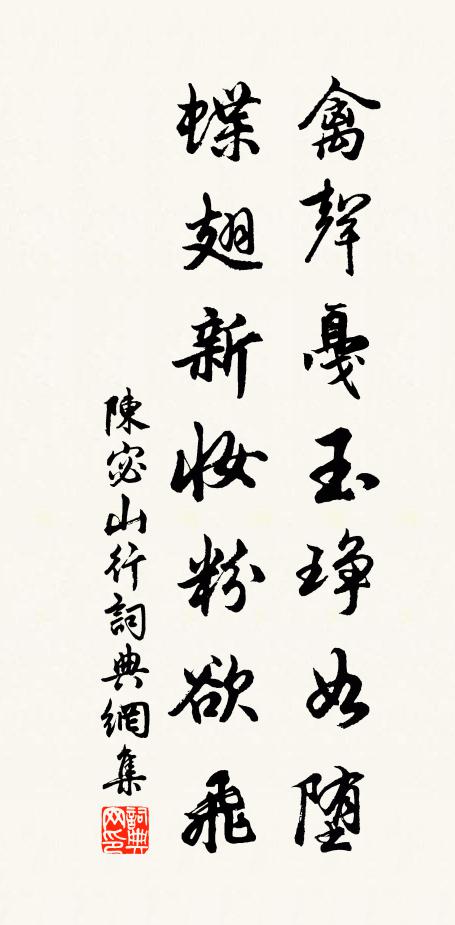 禽聲戛玉琤如墮
蝶翅新妝粉欲飛
陳宓山行詞典網集
詞典網印